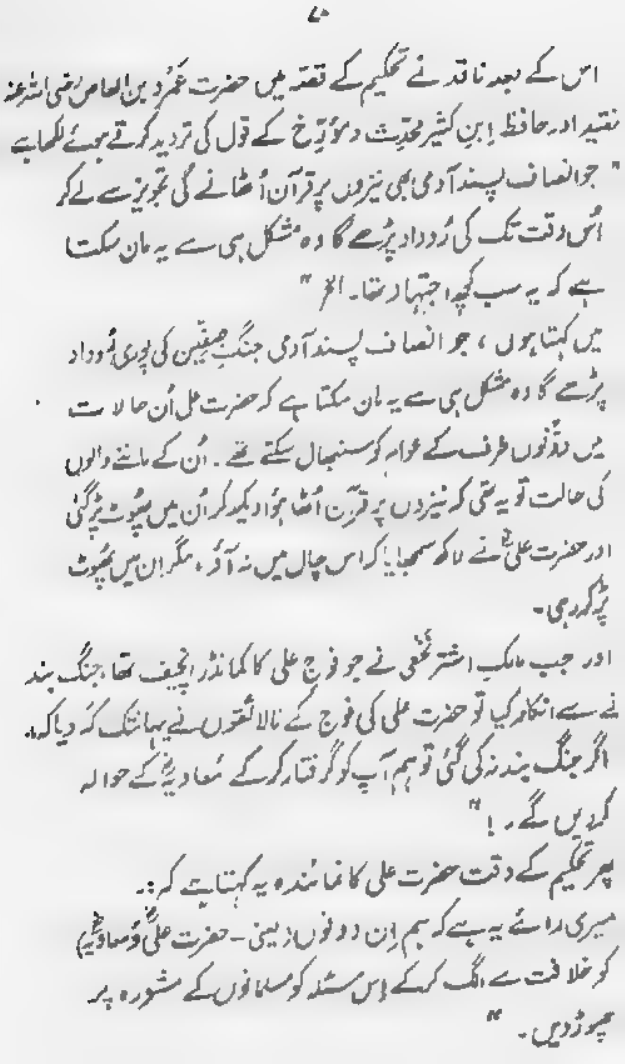 ۷۰
اس کے بعد ناقد نے تحکیم کے قصہ میں حضرت عمرو بن العاص رضی اللہ عنہ
تنقید اور حافظ اِبنِ کثیر محدّث و مؤرّخ کے قول کی تردید کرتے ہوئے لکھا ہے
" جو انصاف پسند آدمی بھی نیزوں پر قرآن اُٹھانے کی تجویز سے لے کر
اُس وقت تک کی رُوداد پڑھے گا وہ مشکل ہی سے یہ مان سکتا
ہے کہ یہ سب کچھ اجتہاد تھا۔ الخ "
میں کہتا ہوں ، جو انصاف پسند آدمی جنگِ صفّین کی پوری رُوداد
پڑھے گا وہ مشکل ہی سے یہ مان سکتا ہے کہ حضرت علی اُن حالات
میں دونوں طرف کے عوام کو سنبھال سکتے تھے ۔ اُن کے ماننے والوں
کی حالت تو یہ تھی کہ نیزوں پر قرآن اُٹھا ہؤا دیکھ کر اُن میں پھوٹ پڑ گئی
اور حضرت علیؓ نے لاکھ سمجھایا کہ اس چال میں نہ آؤ ، مگر اِن میں پھُوٹ
پڑ کر رہی ۔
اور جب مالک اشتر نخعی نے جو فوجِ علی کا کمانڈر انچیف تھا، جنگ بند
نے سے انکار کیا تو حضرت علی کی فوج کے نالائقوں نے یہانتک کہ دیا کہ:۔
اگر جنگ بند نہ کی گئی تو ہم آپ کو گرفتار کر کے مُعاویہؓ کے حوالہ
کر دیں گے ۔ ! "
پھر تحکیم کے وقت حضرت علی کا نمائندہ یہ کہتا ہے کہ :۔
میری رائے یہ ہے کہ ہم اِن دونوں (یعنی - حضرت علیؓ و مُعاویہؓ)
کو خلافت سے الگ کر کے اِس مسئلہ کو مسلمانوں کے مشورہ پر
چھوڑ دیں ۔ "